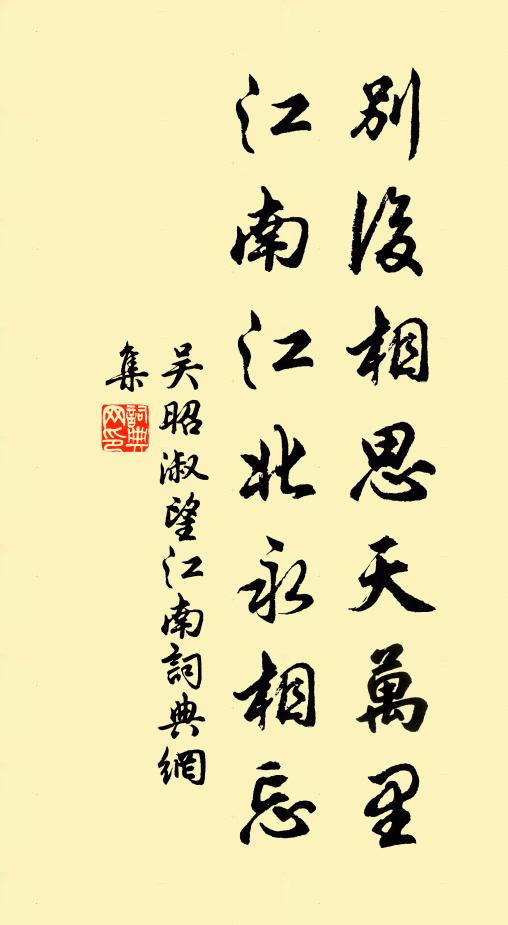 別後相思天萬里
江南江北永相忘
吴昭淑望江南詞典網
集
詞典
网印